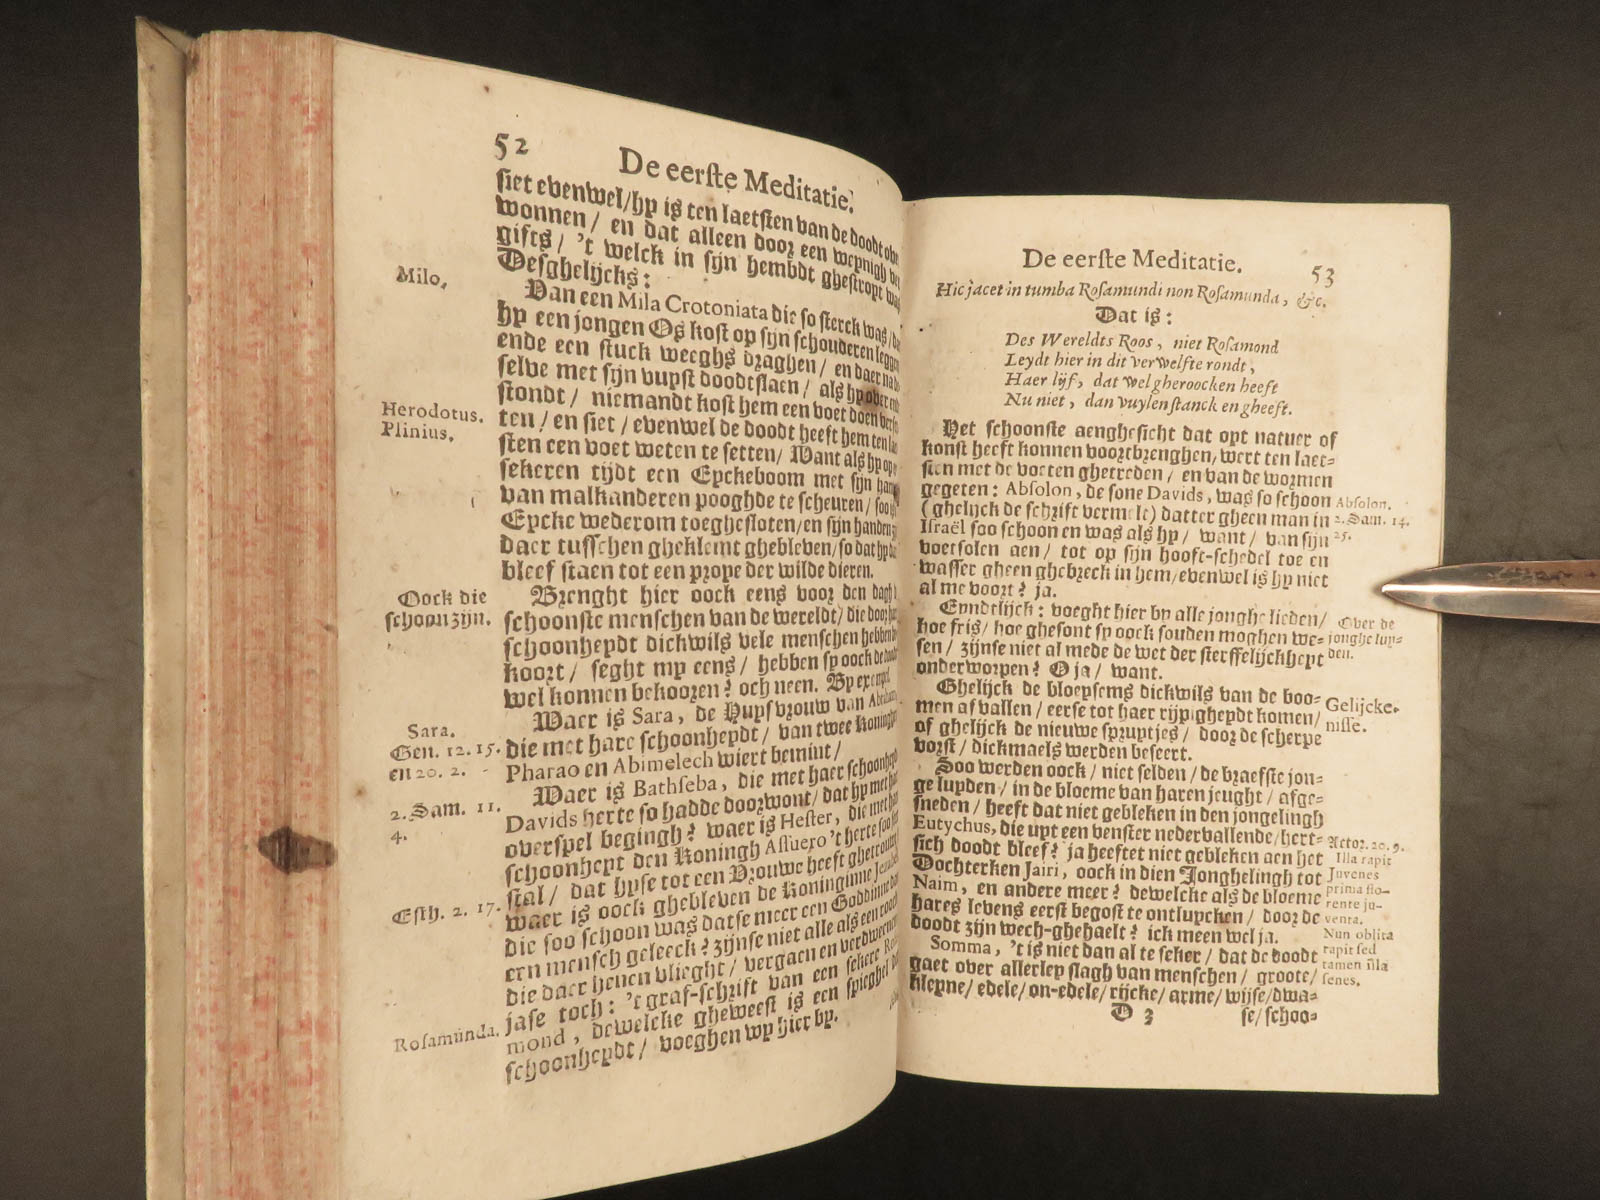 52
De eerste Meditatie.
siet evenwel/hy is ten laetsten van de doodt ober
wonnen/ en dat alleen door een weynigh ver
gifts/ 't welck in sijn hembdt ghestropt was
Desghelijcks:
Milo.
Van een Mila Crotoniata die so sterck was/
hy een jongen Os kost op sijn schouderen legg
ende een stuck weeghs draghen/ en daer na
selve met sijn vuyst doodtslaen/ als hy over end
stondt/ niemandt kost hem een voet doen verse
Herodotus.
Plinius.
ten/ en siet/ evenwel de doodt heeft hem ten lae
sten een voet weten te setten/ Want als hy op
sekeren tijdt een Eyckeboom met sijn han
van malkanderen pooghde te scheuren/ soo is
Eycke wederom toeghesloten/en sijn handen
daer tusschen gheklemt ghebleven/so dat hy da
bleef staen tot een prope der wilde dieren.
Oock die
schoon zijn.
Brenght hier oock eens voor den dagh
schoonste menschen van de wereldt/ die door haer
schoonheydt dickwils vele menschen hebben
koort/ seght my eens/ hebben sy oock de doodt
wel konnen bekooren? och neen. By exempel
Sara.
Gen. 12. 15.
en 20. 2.
Waer is Sara, de Huysvrouw van Abrahams
die met hare schoonheydt/ van twee Koninghe
Pharao en Abimelech wiert bemint/
2. Sam. 11.
4.
Waer is Bathseba, die met haer schoonheyd
Davids herte so hadde doorwont/ dat hy met haer
overspel begingh? waer is Hester, die met haer
schoonheyt den Koningh Assuero 't herte soo
Esth. 2. 17.
stal/ dat hyse tot een Vrouwe heeft ghetrouwt
waer is oock ghebleven de Koninginne Jesabel
die soo schoon was datse meer een Goddinne
een mensch geleeck? zijnse niet alle als een roock
die daer henen vlieght/ vergaen en verdwenen
jase toch: 't graf-schrift van een sekere Ro
Rosamunda.
mond, dewelcke gheweest is een spieghel der
schoonheydt/ voeghen wy hier by.
De eerste Meditatie.
53
Hic jacet in tumba Rosamundi non Rosamunda, &c.
Dat is:
Des Wereldts Roos, niet Rosamond
Leydt hier in dit verwelfte rondt,
Haer lijf, dat wel gheroocken heeft
Nu niet, dan vuylen stanck en gheeft.
Het schoonste aenghesicht dat oyt natuer of
konst heeft konnen voortbrenghen, wert ten laet-
sten met de voeten ghetreden/ en van de wormen
gegeten: Absolon, de sone Davids, was so schoon
Absolon.
2. Sam. 14.
25.
(ghelijck de schrift vermelt) datter gheen man in
Israël soo schoon en was als hy/ want/ van sijn
voetsolen aen/ tot op sijn hooft-schedel toe en
wasser gheen ghebreck in hem/evenwel is hy niet
al me voort? ja.
Eyndtlijck: voeght hier by alle jonghe lieden/
Over de
jonghe luy-
den.
hoe fris/ hoe ghesont sy oock souden moghen we-
sen/ zijnse niet al mede de wet der sterffelijckheyt
onderworpen? O ja/ want.
Ghelijck de bloeysems dickwils van de boo-
Gelijcke-
nisse.
men afvallen/ eerse tot haer rijpigheydt komen/
of ghelijck de nieuwe spruytjes/ door de scherpe
vorst/ dickmaels werden beseert.
Soo werden oock/ niet selden/ de braefste jon-
ge luyden/ in de bloeme van haren jeught/ afge-
sneden/ heeft dat niet gebleken in den jongelingh
Eutychus, die uyt een venster nedervallende/ hert-
Actor. 20. 9.
sich doodt bleef? ja heeftet niet gebleken aen het
Illa rapit
Juvenes
prima flo-
rente ju-
venta.
Nun oblita
rapit sed
tamen illa
senes.
Dochterken Jairi, oock in dien Jonghelingh tot
Naim, en andere meer? dewelcke als de bloeme
hares levens eerst begost te ontluycken/ door de
doodt zijn wech-ghehaelt? ick meen wel ja.
Somma, 't is niet dan al te seker/ dat de doodt
gaet over allerley slagh van menschen/ groote/
kleyne/ edele/ on-edele/ rijcke/ arme/ wijse/dwa-
D 3
se/ schoo-